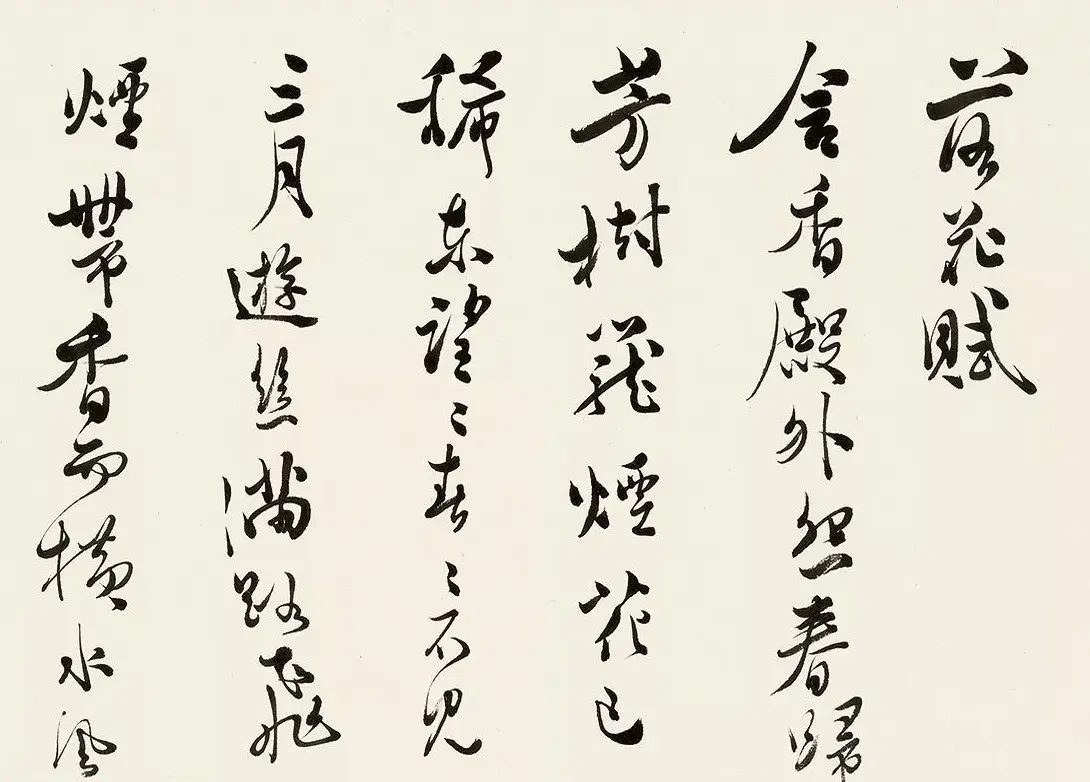 落花賦
含香殿外怨春歸
芳樹蘢煙花已
稀東望望春春不見
三月遊絲滿路飛
煙帶香而橫水風